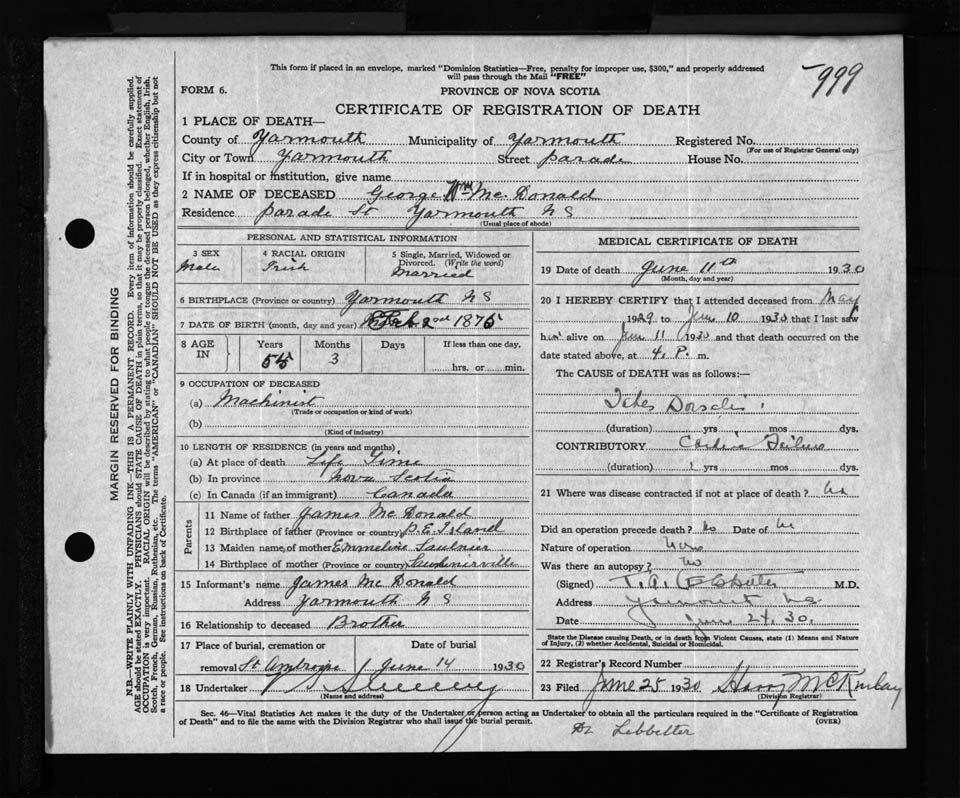 999
This form if placed in an envelope, marked "Dominion Statistics—Free, penalty for improper use, $300," and properly addressed
will pass through the Mail "FREE"
FORM 6.
PROVINCE OF NOVA SCOTIA
CERTIFICATE OF REGISTRATION OF DEATH
1 PLACE OF DEATH—
County of Yarmouth Municipality of Yarmouth Registered No.
(For use of Registrar General only)
City or Town Yarmouth Street Parade House No.
If in hospital or institution, give name
2 NAME OF DECEASED George Wm McDonald
Residence Parade St Yarmouth N S
(Usual place of abode)
PERSONAL AND STATISTICAL INFORMATION
3 SEX
Male
4 RACIAL ORIGIN
Irish
5 Single, Married, Widowed or
Divorced. (Write the word)
Married
6 BIRTHPLACE (Province or country) Yarmouth N S
7 DATE OF BIRTH (month, day and year) Feb 2nd 1875
8 AGE IN
Years 55
Months 3
Days
If less than one day,
hrs. or min.
9 OCCUPATION OF DECEASED
(a) Machinist
(Trade or occupation or kind of work)
(b)
(Kind of industry)
10 LENGTH OF RESIDENCE (in years and months)
(a) At place of death Life Time
(b) In province Nova Scotia
(c) In Canada (if an immigrant) Canada
Parents
11 Name of father James McDonald
12 Birthplace of father (Province or country) P.E. Island
13 Maiden name of mother Emmeline Saulnier
14 Birthplace of mother (Province or country) Saulnierville
15 Informant's name James McDonald
Address Yarmouth N S
16 Relationship to deceased Brother
17 Place of burial, cremation or Date of burial
removal St Ambrose June 14 1930
18 Undertaker
(Name and address)
MEDICAL CERTIFICATE OF DEATH
19 Date of death June 11th 1930
(Month, day and year)
20 I HEREBY CERTIFY that I attended deceased from May
1929 to June 10 1930 that I last saw
him alive on June 11 1930 and that death occurred on the
date stated above, at 4. P. m.
The CAUSE of DEATH was as follows:—
Tabes Dorsalis
(duration) yrs mos dys.
CONTRIBUTORY Cardiac Failure
(duration) yrs mos dys.
21 Where was disease contracted if not at place of death? no
Did an operation precede death? no Date of
Nature of operation
Was there an autopsy? no
(Signed) T. A. M.D.
Address Yarmouth N.S.
Date June 24. 30.
State the Disease causing Death, or in death from Violent Causes, state (1) Means and Nature
of Injury, (2) whether Accidental, Suicidal or Homicidal.
22 Registrar's Record Number
23 Filed June 25 1930 Harry McKinlay
(Division Registrar)
Sec. 46—Vital Statistics Act makes it the duty of the Undertaker or person acting as Undertaker to obtain all the particulars required in the "Certificate of Registration
of Death" and to file the same with the Division Registrar who shall issue the burial permit.
(OVER)
Dr Lebbetter
MARGIN RESERVED FOR BINDING
N.B.—WRITE PLAINLY WITH UNFADING INK—THIS IS A PERMANENT RECORD. Every item of information should be carefully supplied.
AGE should be stated EXACTLY. PHYSICIANS should STATE CAUSE OF DEATH in plain terms, so that it may be properly classified. Exact statement of
OCCUPATION is very important. RACIAL ORIGIN will be described by stating to what people or tongue the deceased person belonged, whether English, Irish,
Scotch, French, German, Russian, Ruthenian, etc. The terms "AMERICAN" or "CANADIAN" SHOULD NOT BE USED as they express citizenship but not
a race or people. See instructions on back of Certificate.